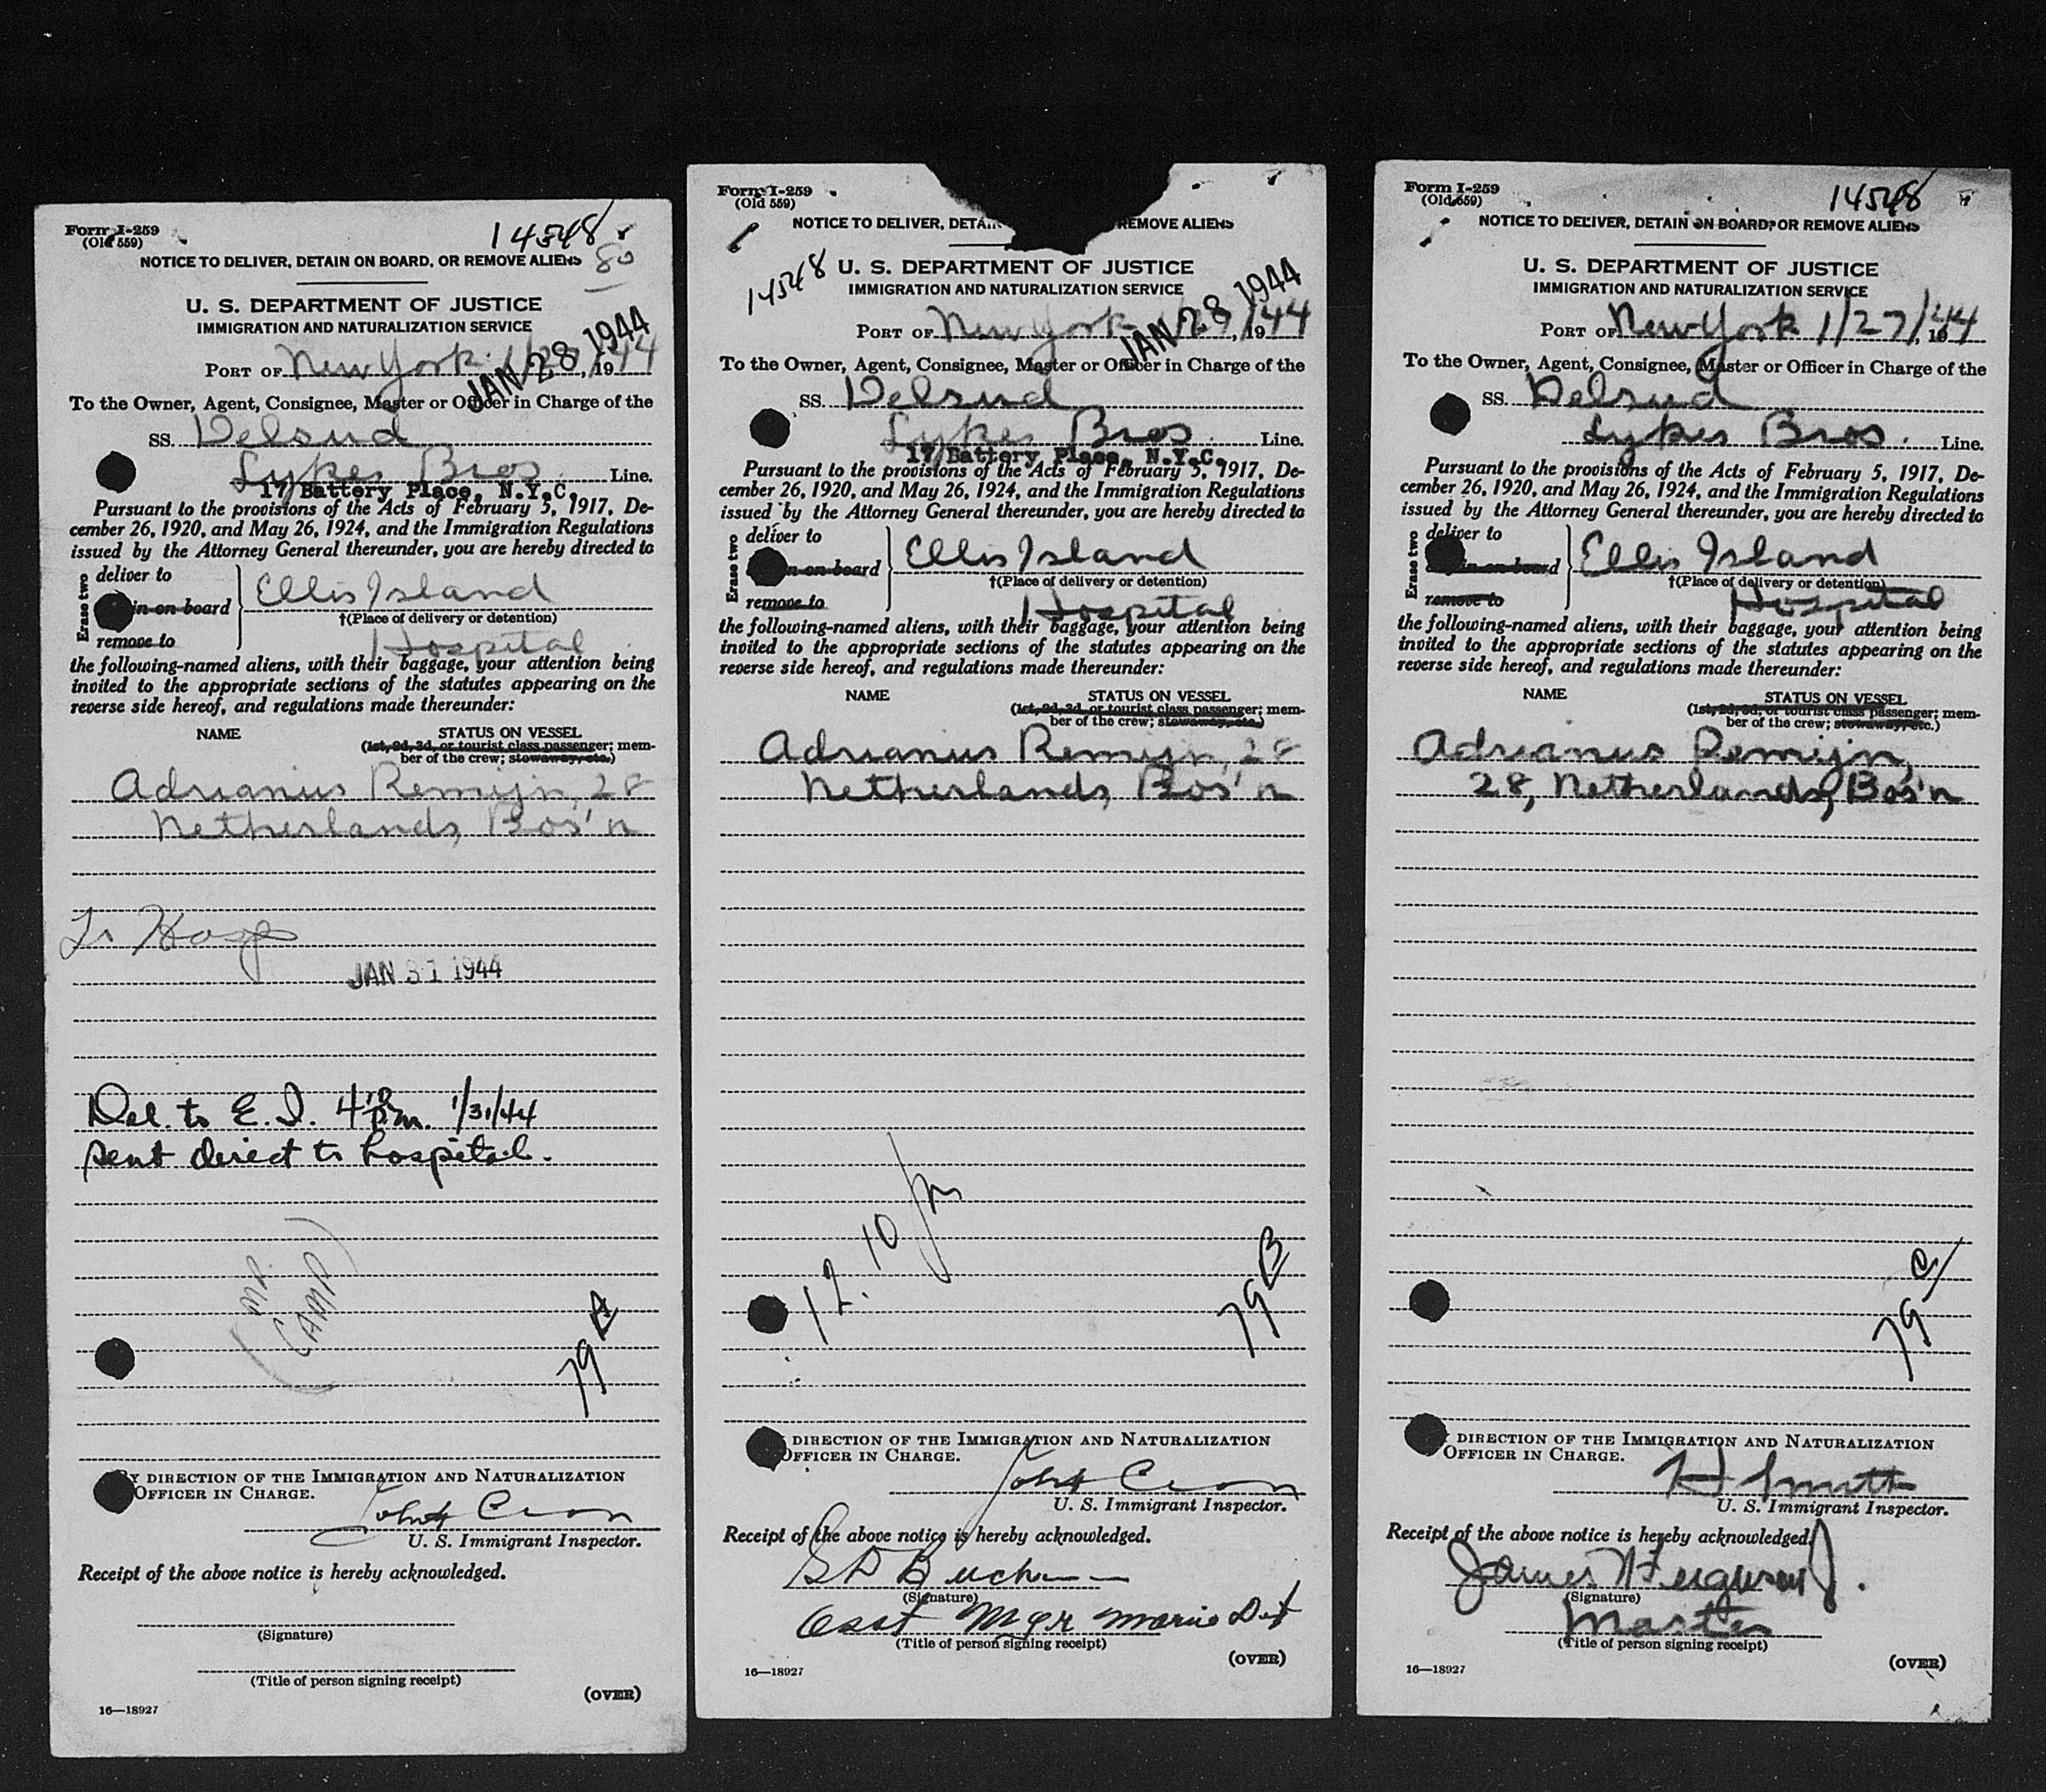 Form I-259
(Old 559)
14548
80
NOTICE TO DELIVER, DETAIN ON BOARD, OR REMOVE ALIENS
U. S. DEPARTMENT OF JUSTICE
IMMIGRATION AND NATURALIZATION SERVICE
JAN 28 1944
PORT OF New York 1/27/, 1944
To the Owner, Agent, Consignee, Master or Officer in Charge of the
SS. Delsud
Lykes Bros. Line.
17 Battery Place, N.Y.C.
Pursuant to the provisions of the Acts of February 5, 1917, De-
cember 26, 1920, and May 26, 1924, and the Immigration Regulations
issued by the Attorney General thereunder, you are hereby directed to
Erase two
deliver to
in on board
remove to
Ellis Island
†(Place of delivery or detention)
Hospital
the following-named aliens, with their baggage, your attention being
invited to the appropriate sections of the statutes appearing on the
reverse side hereof, and regulations made thereunder:
NAME STATUS ON VESSEL
(1st, 2d, 3d, or tourist class passenger; mem-
ber of the crew; stowaway, etc.)
Adrianus Remijn, 28
Netherlands, Bos'n
To Hosp
JAN 31 1944
Del. to E. I. 4 10 p.m. 1/31/44
sent direct to hospital.
79 A
BY DIRECTION OF THE IMMIGRATION AND NATURALIZATION
OFFICER IN CHARGE.
U. S. Immigrant Inspector.
Receipt of the above notice is hereby acknowledged.
(Signature)
(Title of person signing receipt)
(OVER)
16—18927
Form I-259
(Old 559)
NOTICE TO DELIVER, DETA REMOVE ALIENS
14548
U. S. DEPARTMENT OF JUSTICE
IMMIGRATION AND NATURALIZATION SERVICE
JAN 28 1944
PORT OF New York 1/27/, 1944
To the Owner, Agent, Consignee, Master or Officer in Charge of the
SS. Delsud
Lykes Bros. Line.
17 Battery Place, N.Y.C.
Pursuant to the provisions of the Acts of February 5, 1917, De-
cember 26, 1920, and May 26, 1924, and the Immigration Regulations
issued by the Attorney General thereunder, you are hereby directed to
Erase two
deliver to
n on board
remove to
Ellis Island
†(Place of delivery or detention)
Hospital
the following-named aliens, with their baggage, your attention being
invited to the appropriate sections of the statutes appearing on the
reverse side hereof, and regulations made thereunder:
NAME STATUS ON VESSEL
(1st, 2d, 3d, or tourist class passenger; mem-
ber of the crew; stowaway, etc.)
Adrianus Remijn, 28
Netherlands, Bos'n
12.10 pm
79 B
DIRECTION OF THE IMMIGRATION AND NATURALIZATION
OFFICER IN CHARGE.
U. S. Immigrant Inspector.
Receipt of the above notice is hereby acknowledged.
(Signature)
Asst Mgr Marine Dpt
(Title of person signing receipt)
(OVER)
16—18927
Form I-259
(Old 559)
14548
NOTICE TO DELIVER, DETAIN ON BOARD, OR REMOVE ALIENS
U. S. DEPARTMENT OF JUSTICE
IMMIGRATION AND NATURALIZATION SERVICE
PORT OF New York 1/27/, 1944
To the Owner, Agent, Consignee, Master or Officer in Charge of the
SS. Delsud
Lykes Bros. Line.
Pursuant to the provisions of the Acts of February 5, 1917, De-
cember 26, 1920, and May 26, 1924, and the Immigration Regulations
issued by the Attorney General thereunder, you are hereby directed to
Erase two
deliver to
in on board
remove to
Ellis Island
†(Place of delivery or detention)
Hospital
the following-named aliens, with their baggage, your attention being
invited to the appropriate sections of the statutes appearing on the
reverse side hereof, and regulations made thereunder:
NAME STATUS ON VESSEL
(1st, 2d, 3d, or tourist class passenger; mem-
ber of the crew; stowaway, etc.)
Adrianus Remijn,
28, Netherlands, Bos'n
79 C
DIRECTION OF THE IMMIGRATION AND NATURALIZATION
OFFICER IN CHARGE.
H Smith
U. S. Immigrant Inspector.
Receipt of the above notice is hereby acknowledged.
James W Ferguson Jr.
(Signature)
Master
(Title of person signing receipt)
(OVER)
16—18927